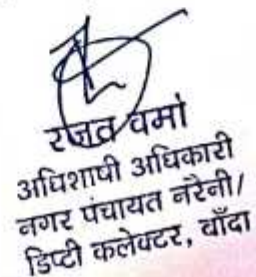 रजत वर्मा
अधिशाषी अधिकारी
नगर पंचायत नरैनी/
डिप्टी कलेक्टर, बाँदा